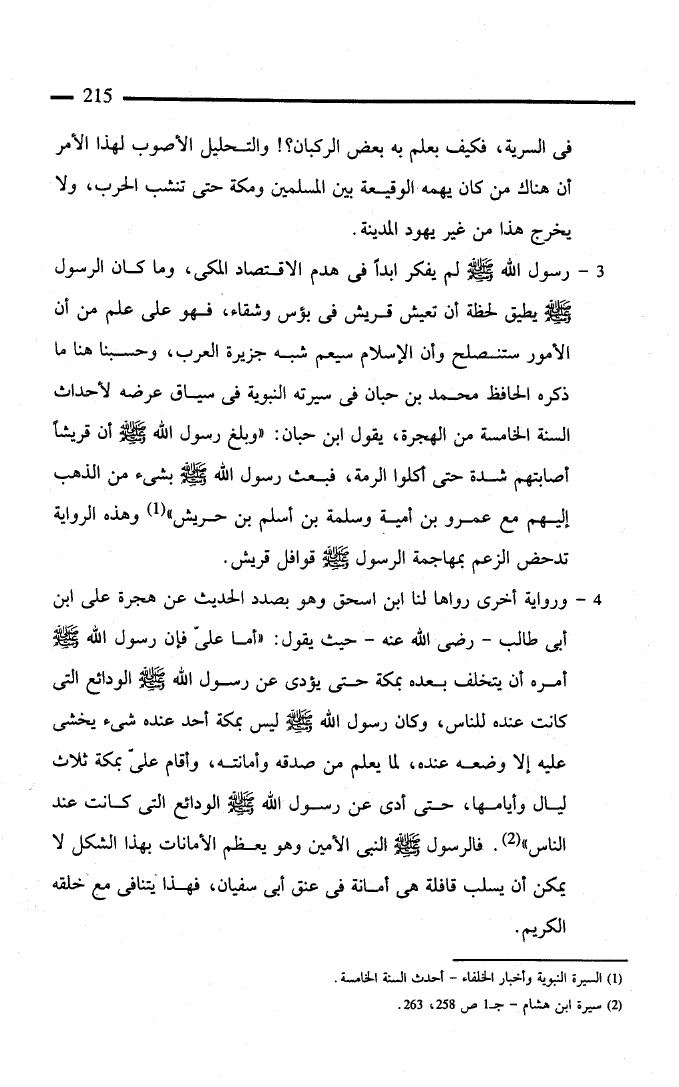 215
فى السرية، فكيف يعلم به بعض الركبان؟! والتحليل الأصوب لهذا الأمر
أن هناك من كان يهمه الوقيعة بين المسلمين ومكة حتى تنشب الحرب، ولا
يخرج هذا من غير يهود المدينة.
3 - رسول الله ﷺ لم يفكر ابداً فى هدم الاقتصاد المكى، وما كان الرسول
ﷺ يطيق لحظة أن تعيش قريش فى بؤس وشقاء، فهو على علم من أن
الأمور ستنصلح وأن الإسلام سيعم شبه جزيرة العرب، وحسبنا هنا ما
ذكره الحافظ محمد بن حبان فى سيرته النبوية فى سياق عرضه لأحداث
السنة الخامسة من الهجرة، يقول ابن حبان: «وبلغ رسول الله ﷺ أن قريشاً
أصابتهم شدة حتى أكلوا الرمة، فبعث رسول الله ﷺ بشىء من الذهب
إليهم مع عمرو بن أمية وسلمة بن أسلم بن حريش»(1) وهذه الرواية
تدحض الزعم بمهاجمة الرسول ﷺ قوافل قريش.
4 - ورواية أخرى رواها لنا ابن اسحق وهو بصدد الحديث عن هجرة على ابن
أبى طالب - رضى الله عنه - حيث يقول: «أما علىّ فإن رسول الله ﷺ
أمره أن يتخلف بعده بمكة حتى يؤدى عن رسول الله ﷺ الودائع التى
كانت عنده للناس، وكان رسول الله ﷺ ليس بمكة أحد عنده شىء يخشى
عليه إلا وضعه عنده، لما يعلم من صدقه وأمانته، وأقام علىّ بمكة ثلاث
ليال وأيامها، حتى أدى عن رسول الله ﷺ الودائع التى كانت عند
الناس»(2). فالرسول ﷺ النبى الأمين وهو يعظم الأمانات بهذا الشكل لا
يمكن أن يسلب قافلة هى أمانة فى عنق أبى سفيان، فهذا يتنافى مع خلقه
الكريم.
(1) السيرة النبوية وأخبار الخلفاء - أحدث السنة الخامسة.
(2) سيرة ابن هشام - جـ1 ص 258، 263.